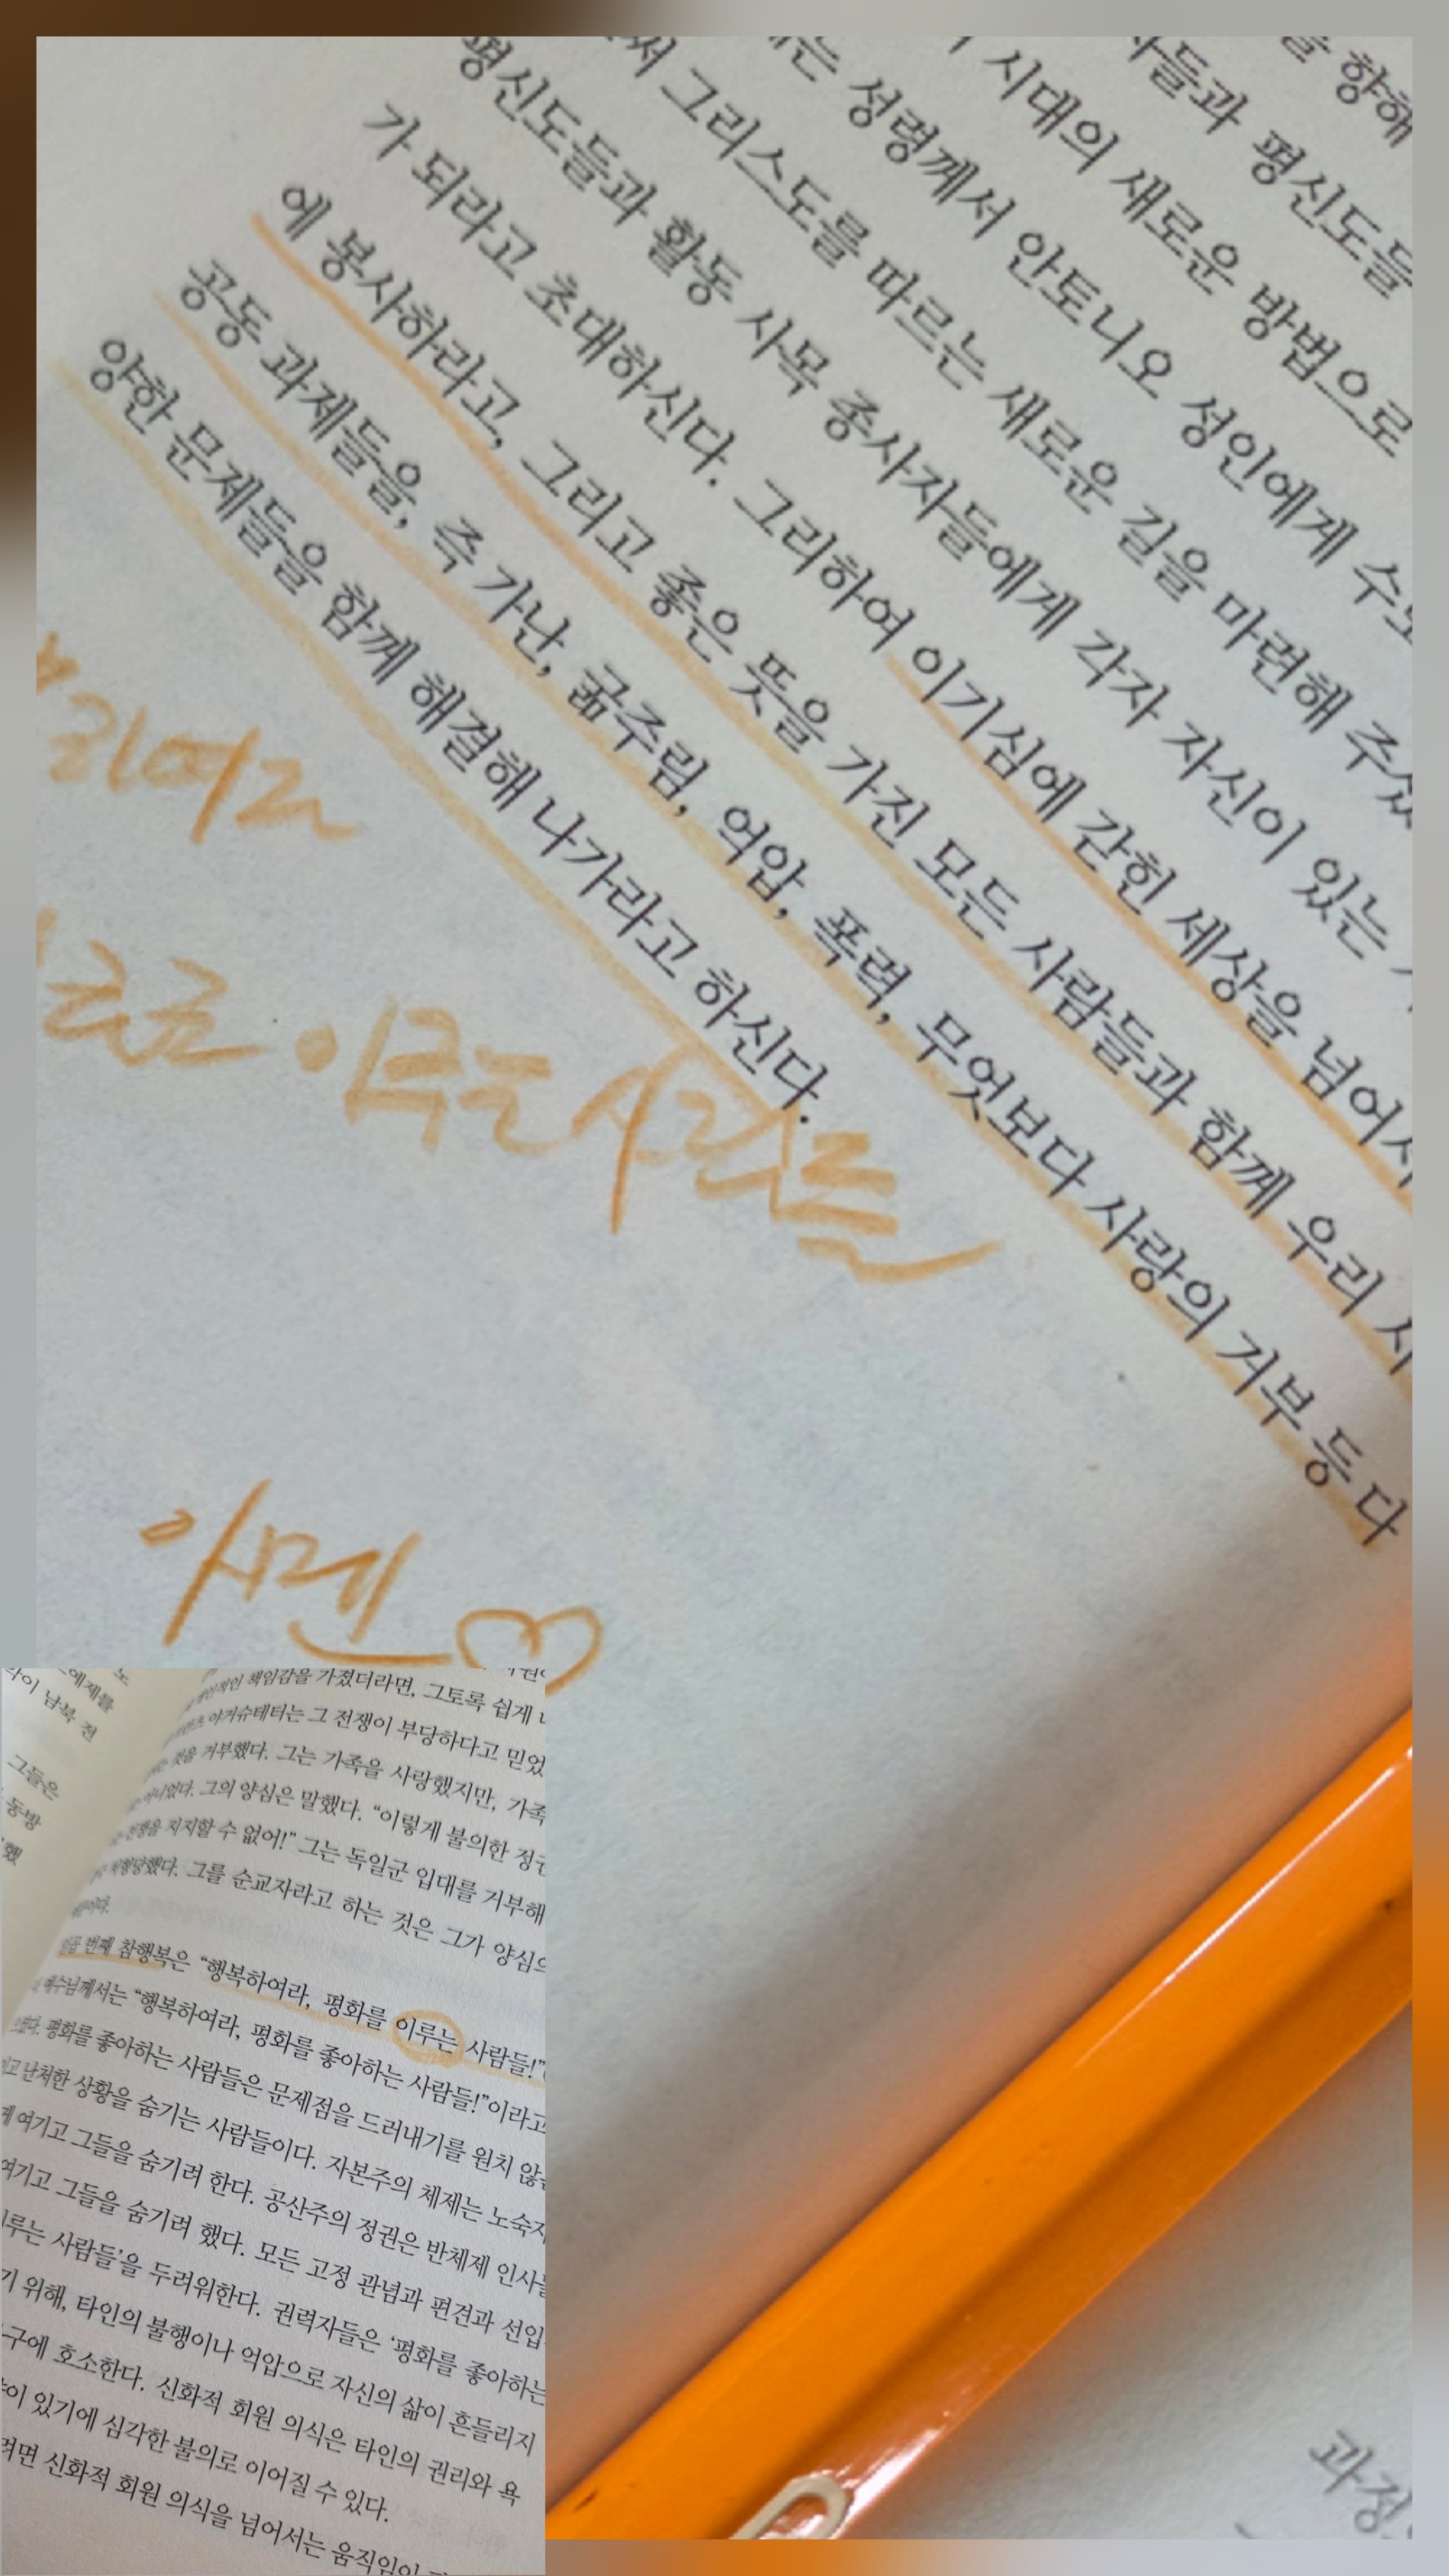 을 향해
들과 평신도들
시대의 새로운 방법으로
는 성령께서 안토니오 성인에게
써 그리스도를 따르는 새로운 길을 마련해
평신도들과 활동 사목 종사자들에게 각자 자신이 있는
가 되라고 초대하신다. 그리하여 이기심에 갇힌 세상을 넘어서
에 봉사하라고, 그리고 좋은 뜻을 가진 모든 사람들과 함께 우리
공동 과제들을, 즉 가난, 굶주림, 억압, 폭력, 무엇보다 사랑의 거부 등 다
양한 문제들을 함께 해결해 나가라고 하신다.
이루는 사람들
아멘
과정
남북 전
그들은
동방
했
책임감을 가졌더라면, 그토록 쉽게
그 전쟁이 부당하다고 믿었
것을 거부했다. 그는 가족을 사랑했지만, 가족
아니었다. 그의 양심은 말했다. “이렇게 불의한 정권
전쟁을 지지할 수 없어!” 그는 독일군 입대를 거부해
처형당했다. 그를 순교자라고 하는 것은 그가 양심의
번째 참행복은 “행복하여라, 평화를 이루는 사람들!”
예수님께서는 “행복하여라, 평화를 좋아하는 사람들!”이라고
평화를 좋아하는 사람들은 문제점을 드러내기를 원치 않
난처한 상황을 숨기는 사람들이다. 자본주의 체제는 노숙자
여기고 그들을 숨기려 한다. 공산주의 정권은 반체제 인사들
여기고 그들을 숨기려 했다. 모든 고정 관념과 편견과 선입
루는 사람들’을 두려워한다. 권력자들은 ‘평화를 좋아하는
기 위해, 타인의 불행이나 억압으로 자신의 삶이 흔들리지
구에 호소한다. 신화적 회원 의식은 타인의 권리와 욕
이 있기에 심각한 불의로 이어질 수 있다.
려면 신화적 회원 의식을 넘어서는 움직임이